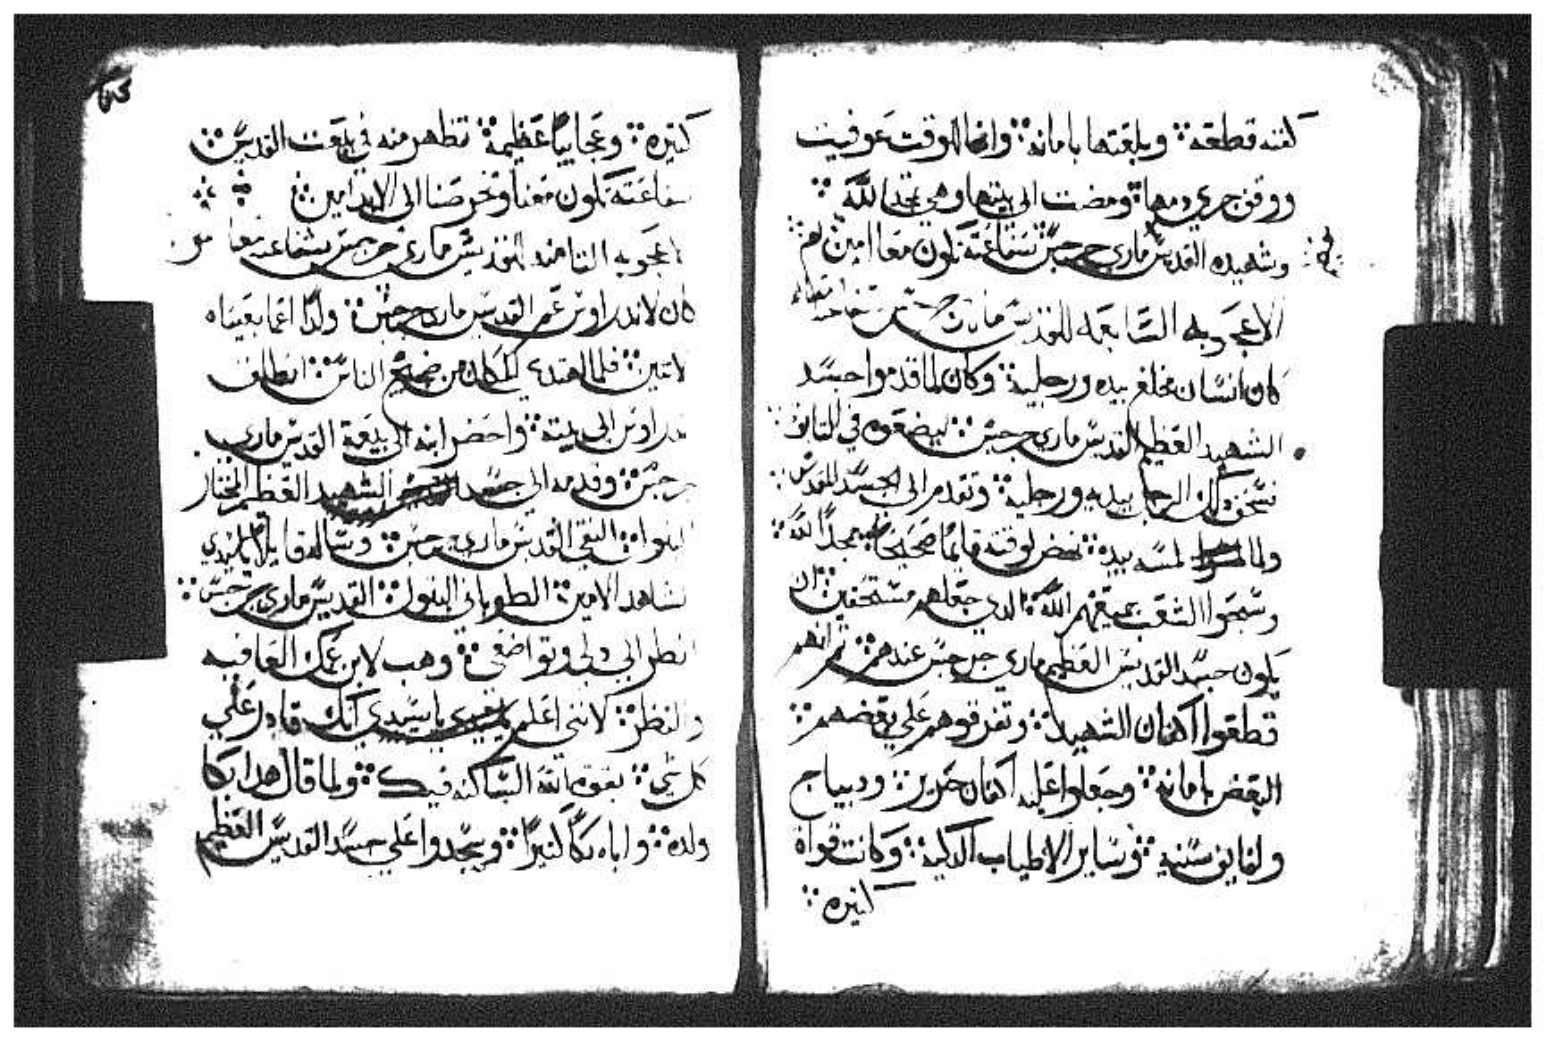 كفنه قطعه ⁘ وبلعتها بامانه ⁘ وانها للوقت عوفيت
ووقف جري دمها ⁘ ومضت الى بيتها وهي تمجد الله ⁘
وشهيده القديس ماري جرجس شفاعته تكون معنا امين
الاعجوبه السابعه للقديس ماري جرجس
كان انسان مخلع بيده ورجليه ⁘ وكان لما قدموا جسد
الشهيد العظيم القديس ماري جرجس ⁘ ليضعوه في
ذلك الرجل بيديه ورجليه ⁘ وتقدم الى الجسد المقدس ⁘
ولما لمسه بيده ⁘ نهض لوقته قايما صحيحا ⁘ ممجدا لله ⁘
وسبحوا الشعب جميعهم الله ⁘ الدي جعلهم مستحقين ⁘ ان
يكون جسد القديس العظيم ماري جرجس عندهم ⁘ ثم انهم
قطعوا اكفان الشهيد ⁘ وتفرقوهم على بعضهم ⁘
البعض بامانه ⁘ وجعلوا عليه اكفان حرير ⁘ وديباج
ولفايف سنيه ⁘ وساير الاطياب الدكيه ⁘ وكانت قواة
كثيره ⁘
كثيره ⁘ وعجايبا عظيمة ⁘ تظهر منه في بيعت القديس ⁘
شفاعته تكون معنا وتحرصنا الى الابد امين ⁘
الاعجوبه الثامنه للقديس ماري جرجس شفاعته معنا
كان لاندراوس عم القديس ماري جرجس ⁘ ولدا اعما بعيناه
لاتنين ⁘ فلما اهتدى المكان من ضجيج الناس ⁘ انطلق
اندراوس الى بيته ⁘ واحضر ابنه الى بيعة القديس ماري
جرجس ⁘ وقدمه الى جسد الشهيد العظيم المختار
البتول ⁘ النقي القديس ماري جرجس ⁘ وساله قايلا يا سيدي
الشاهد الامين ⁘ الطوباني البتول ⁘ القديس ماري جرجس ⁘
انظر الى دلي وتواضعي ⁘ وهب لابن عمك العافيه
والنظر ⁘ لانني اعلم يا سيدي انك قادر على
كل شي ⁘ بقوة الله الساكنه فيك ⁘ ولما قال هدا بكا
ولده ⁘ واباه بكاً كثيراً ⁘ وسجدوا على جسد القديس العظيم